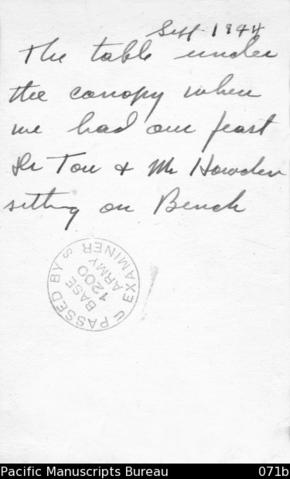 Sept. 1944
The table under
the canopy when
we had our feast
Dr Tou & Mr Howden
sitting on Bench
PASSED BY S U EXAMINER
BASE
1200
ARMY
Pacific Manuscripts Bureau 071b